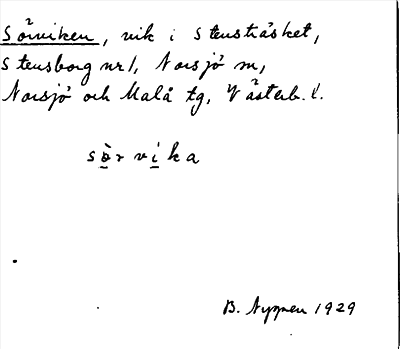 Sörviken, vik i Stensträsket,
Stensborg nr 1, Norsjö sn,
Norsjö och Malå tg, Västerb. l.
sörvika
B. Nygren 1929